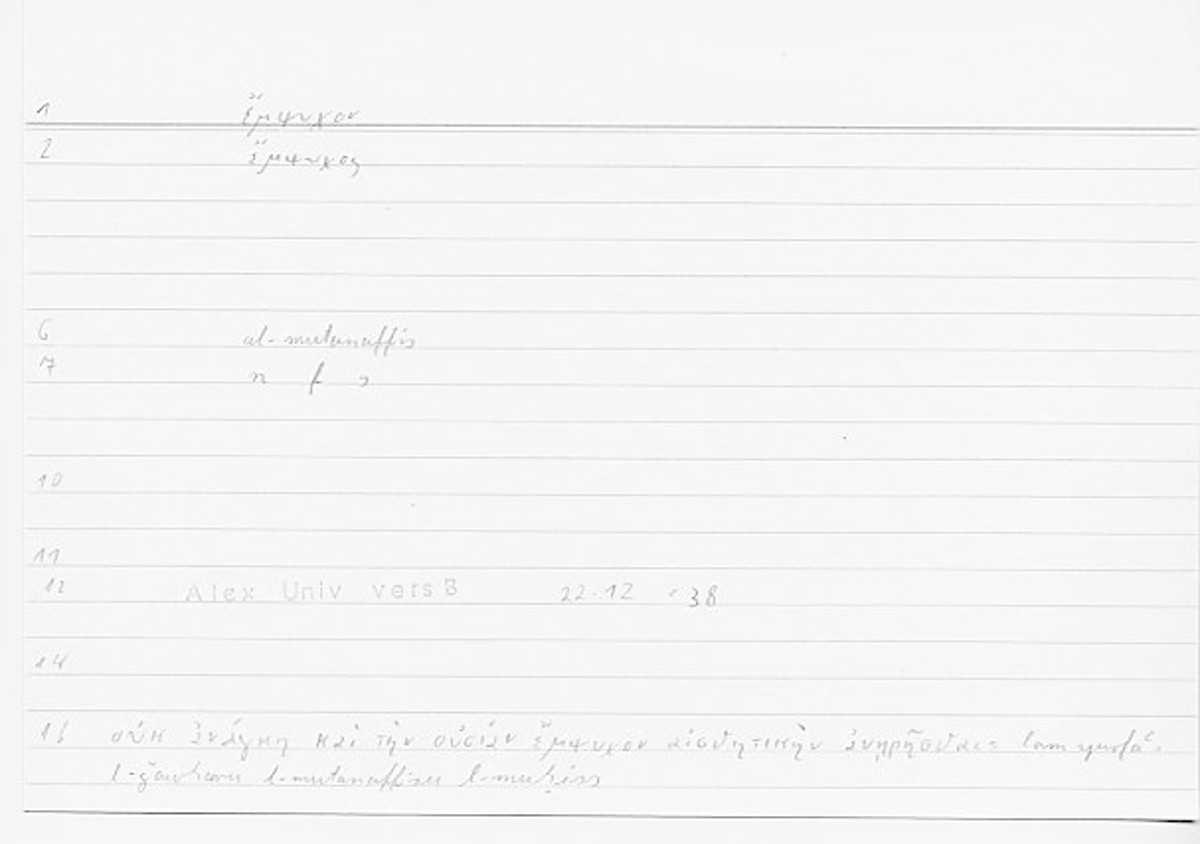 1 ἔμψυχον
2 ἔμψυχος
6 al-mutanaffis
7 n f s
10
11
12 Alex Univ vers B 22.12 - 38
14
15 οὐκ ἀνάγκη καὶ τὴν οὐσίαν ἔμψυχον αἰσθητικὴν ἀνῃρῆσθαι = lam
l-ǧauharu l-mutanaffisu l-muḥiss